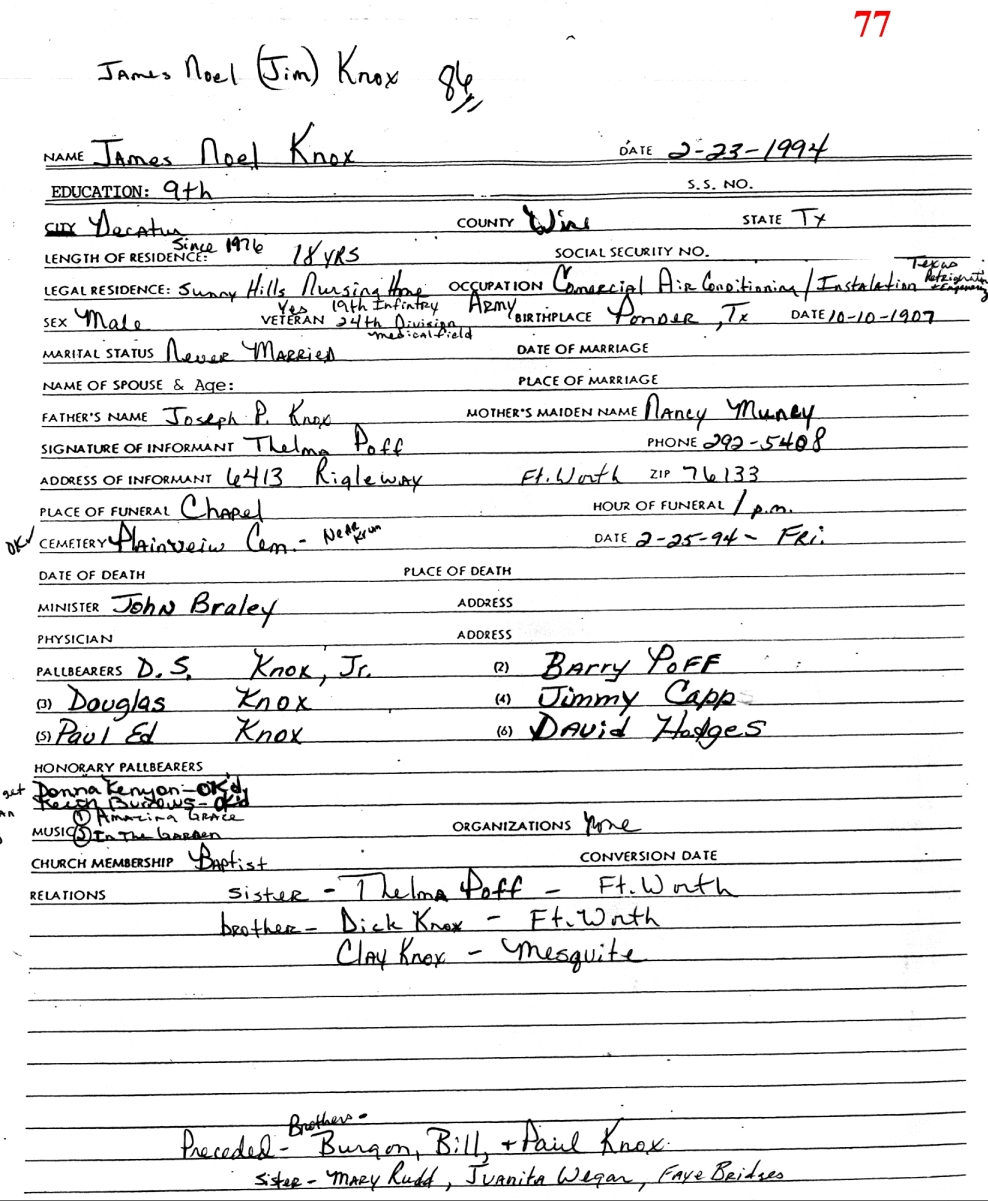 77
James Noel (Jim) Knox 86
NAME James Noel Knox DATE 2-23-1994
EDUCATION: 9th S.S. NO.
CITY Decatur COUNTY Wise STATE Tx
LENGTH OF RESIDENCE: Since 1976 18 YRS SOCIAL SECURITY NO.
LEGAL RESIDENCE: Sunny Hills Nursing Home OCCUPATION Comercial Air Conditioning / Instalation Texas Refrigeration & Engineering
SEX Male VETERAN Yes 19th Infintry Army 24th Division medical field BIRTHPLACE Ponder, Tx DATE 10-10-1907
MARITAL STATUS Never Married DATE OF MARRIAGE
NAME OF SPOUSE & Age: PLACE OF MARRIAGE
FATHER'S NAME Joseph P. Knox MOTHER'S MAIDEN NAME Nancy Muncy
SIGNATURE OF INFORMANT Thelma Poff PHONE 292-5408
ADDRESS OF INFORMANT 6413 Rigleway Ft. Worth ZIP 76133
PLACE OF FUNERAL Chapel HOUR OF FUNERAL 1 p.m.
OK✓ CEMETERY Plainveiw Cem. - Near Krum DATE 2-25-94 - Fri.
DATE OF DEATH PLACE OF DEATH
MINISTER John Braley ADDRESS
PHYSICIAN ADDRESS
PALLBEARERS D.S. Knox, Jr. (2) Barry Poff
(3) Douglas Knox (4) Jimmy Capp
(5) Paul Ed Knox (6) David Hodges
HONORARY PALLBEARERS
get Donna Kenyon - OK'd
Burrows - OK'd
① Amazing Grace
MUSIC ② In The Garden ORGANIZATIONS None
CHURCH MEMBERSHIP Baptist CONVERSION DATE
RELATIONS Sister - Thelma Poff - Ft. Worth
brother - Dick Knox - Ft. Worth
Clay Knox - Mesquite
Brothers -
Preceded - Burgon, Bill, + Paul Knox
Sister - Mary Rudd, Juanita Wegar, Faye Bridges